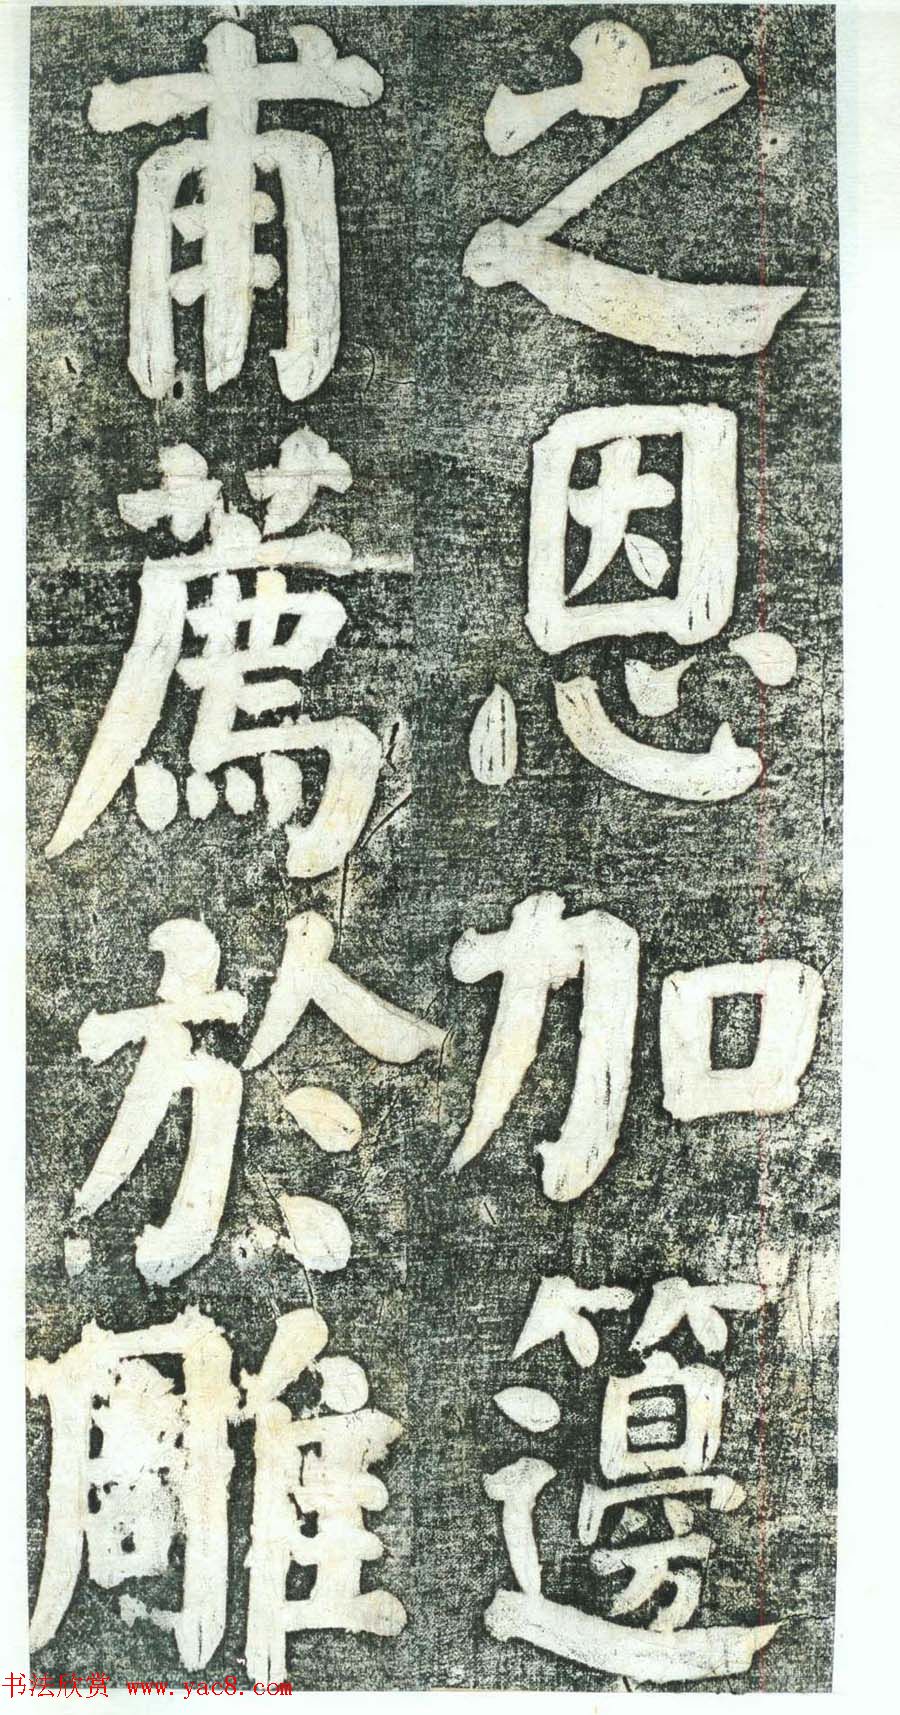 之恩加籩
甫薦於雕
书法欣赏 www.yac8.com